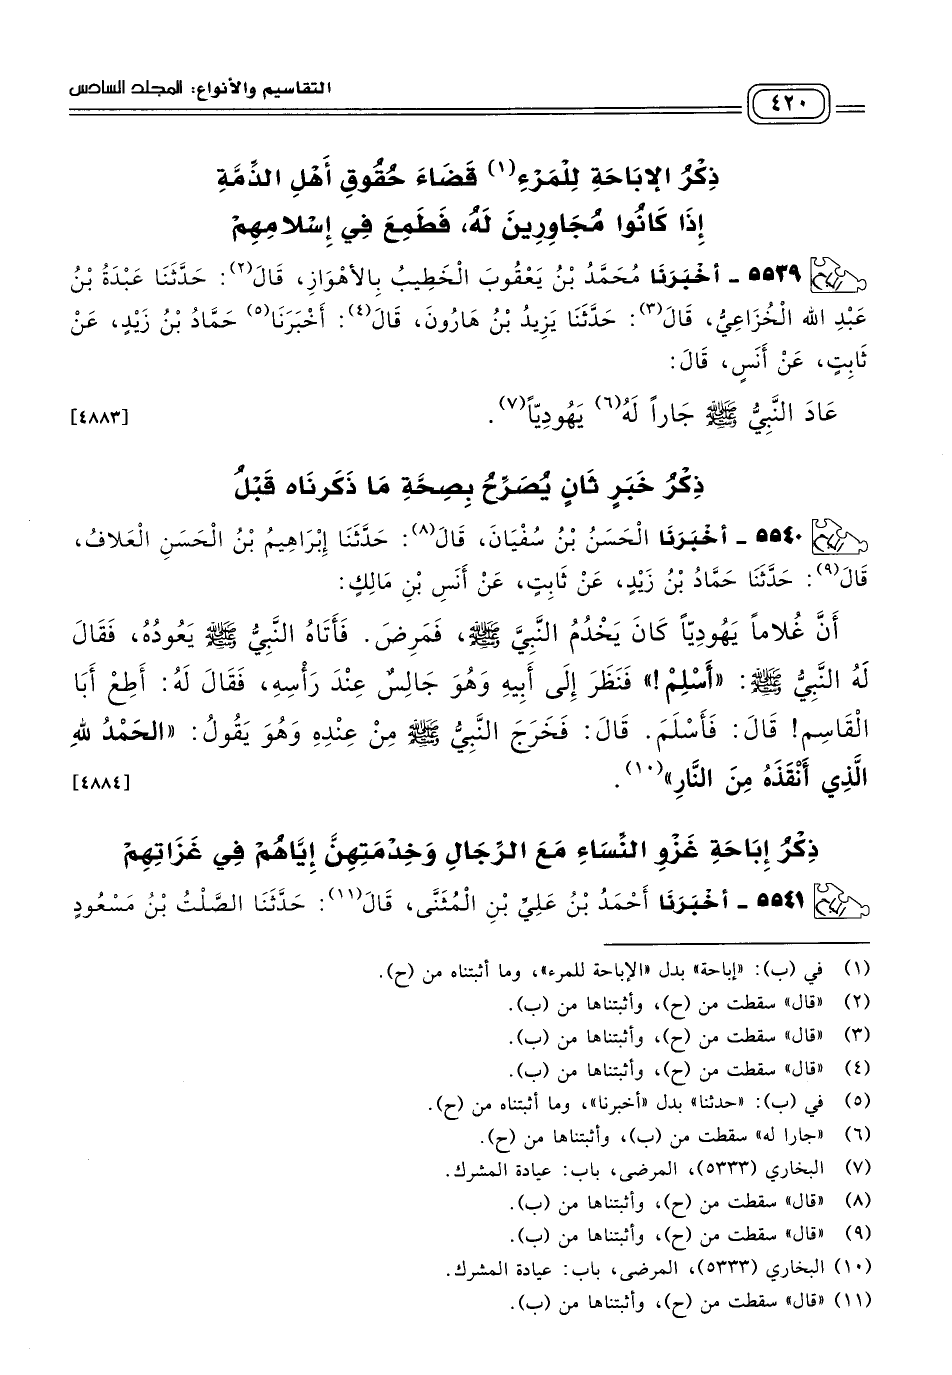 التقاسيم والأنواع: المجلد السادس
٤٢٠
ذِكْرُ الإبَاحَةِ لِلْمَرْءِ(١) قَضَاءَ حُقُوقِ أَهْلِ الذِّمَّةِ
إِذَا كَانُوا مُجَاوِرِينَ لَهُ، فَطَمِعَ فِي إِسْلامِهِمْ
٥٥٣٩ - أَخْبَرَنَا مُحَمَّدُ بْنُ يَعْقُوبَ الْخَطِيبُ بِالأَهْوَازِ، قَالَ(٢): حَدَّثَنَا عَبْدَةُ بْنُ
عَبْدِ الله الْخُزَاعِيُّ، قَالَ(٣): حَدَّثَنَا يَزِيدُ بْنُ هَارُونَ، قَالَ(٤): أَخْبَرَنَا(٥) حَمَّادُ بْنُ زَيْدٍ، عَنْ
ثَابِتٍ، عَنْ أَنَسٍ، قَالَ:
عَادَ النَّبِيُّ ﷺ جَاراً لَهُ(٦) يَهُودِيّاً(٧). [٤٨٨٣]
ذِكْرُ خَبَرٍ ثَانٍ يُصَرِّحُ بِصِحَّةِ مَا ذَكَرنَاه قَبْلُ
٥٥٤٠ - أَخْبَرَنَا الْحَسَنُ بْنُ سُفْيَانَ، قَالَ(٨): حَدَّثَنَا إِبْرَاهِيمُ بْنُ الْحَسَنِ الْعَلافُ،
قَالَ(٩): حَدَّثَنَا حَمَّادُ بْنُ زَيْدٍ، عَنْ ثَابِتٍ، عَنْ أَنَسِ بْنِ مَالِكٍ:
أَنَّ غُلاماً يَهُودِيّاً كَانَ يَخْدُمُ النَّبِيَّ ﷺ، فَمَرِضَ. فَأَتَاهُ النَّبِيُّ ﷺ يَعُودُهُ، فَقَالَ
لَهُ النَّبِيُّ ﷺ: «أَسْلِمْ!» فَنَظَرَ إِلَى أَبِيهِ وَهُوَ جَالِسٌ عِنْدَ رَأْسِهِ، فَقَالَ لَهُ: أَطِعْ أَبَا
الْقَاسِمِ! قَالَ: فَأَسْلَمَ. قَالَ: فَخَرَجَ النَّبِيُّ ﷺ مِنْ عِنْدِهِ وَهُوَ يَقُولُ: «الحَمْدُ للهِ
الَّذِي أَنْقَذَهُ مِنَ النَّارِ»(١٠). [٤٨٨٤]
ذِكْرُ إِبَاحَةِ غَزْوِ النِّسَاءِ مَعَ الرِّجَالِ وَخِدْمَتِهِنَّ إِيَّاهُمْ فِي غَزَاتِهِمْ
٥٥٤١ - أَخْبَرَنَا أَحْمَدُ بْنُ عَلِيِّ بْنِ الْمُثَنَّى، قَالَ(١١): حَدَّثَنَا الصَّلْتُ بْنُ مَسْعُودٍ
(١) في (ب): «إباحة» بدل «الإباحة للمرء»، وما أثبتناه من (ح).
(٢) «قال» سقطت من (ح)، وأثبتناها من (ب).
(٣) «قال» سقطت من (ح)، وأثبتناها من (ب).
(٤) «قال» سقطت من (ح)، وأثبتناها من (ب).
(٥) في (ب): «حدثنا» بدل «أخبرنا»، وما أثبتناه من (ح).
(٦) «جارا له» سقطت من (ب)، وأثبتناها من (ح).
(٧) البخاري (٥٣٣٣)، المرضى، باب: عيادة المشرك.
(٨) «قال» سقطت من (ح)، وأثبتناها من (ب).
(٩) «قال» سقطت من (ح)، وأثبتناها من (ب).
(١٠) البخاري (٥٣٣٣)، المرضى، باب: عيادة المشرك.
(١١) «قال» سقطت من (ح)، وأثبتناها من (ب).